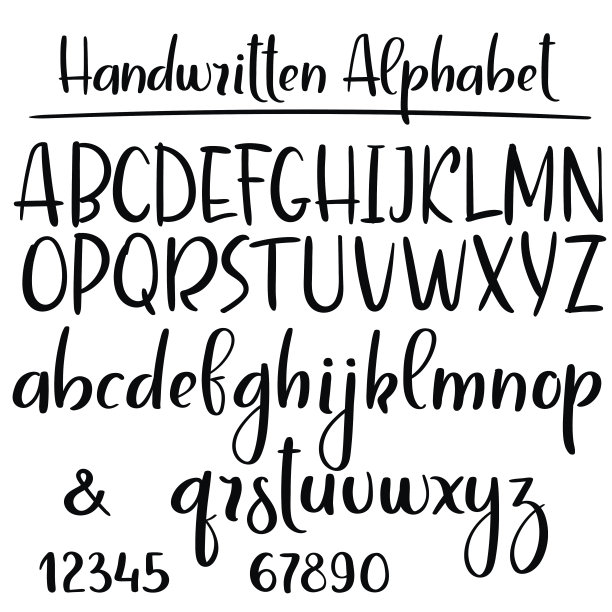 Handwritten Alphabet
ABCDEFGHIJKLMN
OPQRSTUVWXYZ
abcdefghijklmnop
& qrstuvwxyz
12345 67890